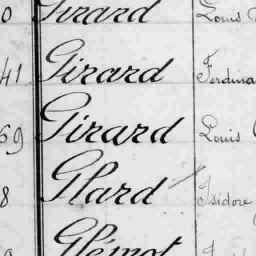 0 Girard Louis
41 Girard Ferdina
69 Girard Louis
8 Glard Isidore
Glémot